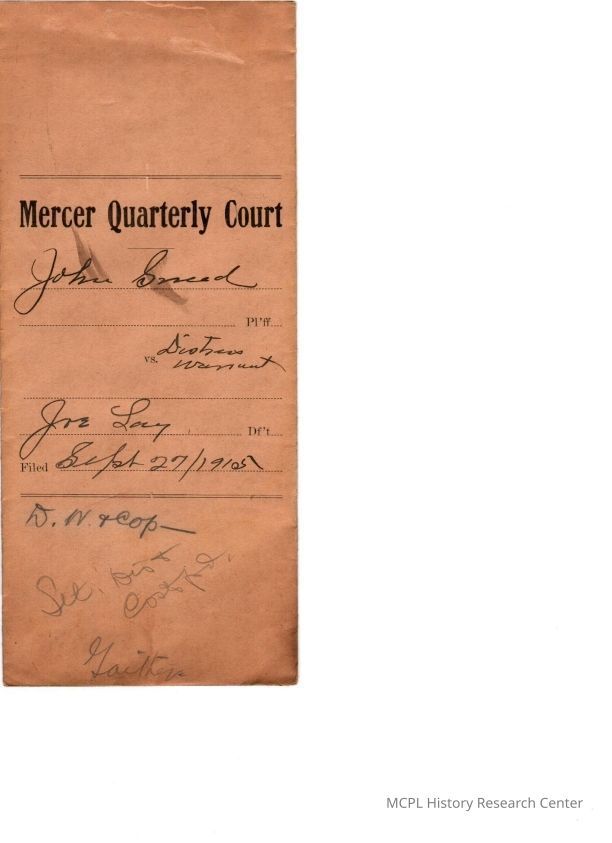 Mercer Quarterly Court
John Sneed
Pl'ff.
vs. Distress
Warrant
Joe Lay
Df't.
Filed Sept 27/1915
D. W. & Cop
Set. Dis &
Costs pd.
MCPL History Research Center